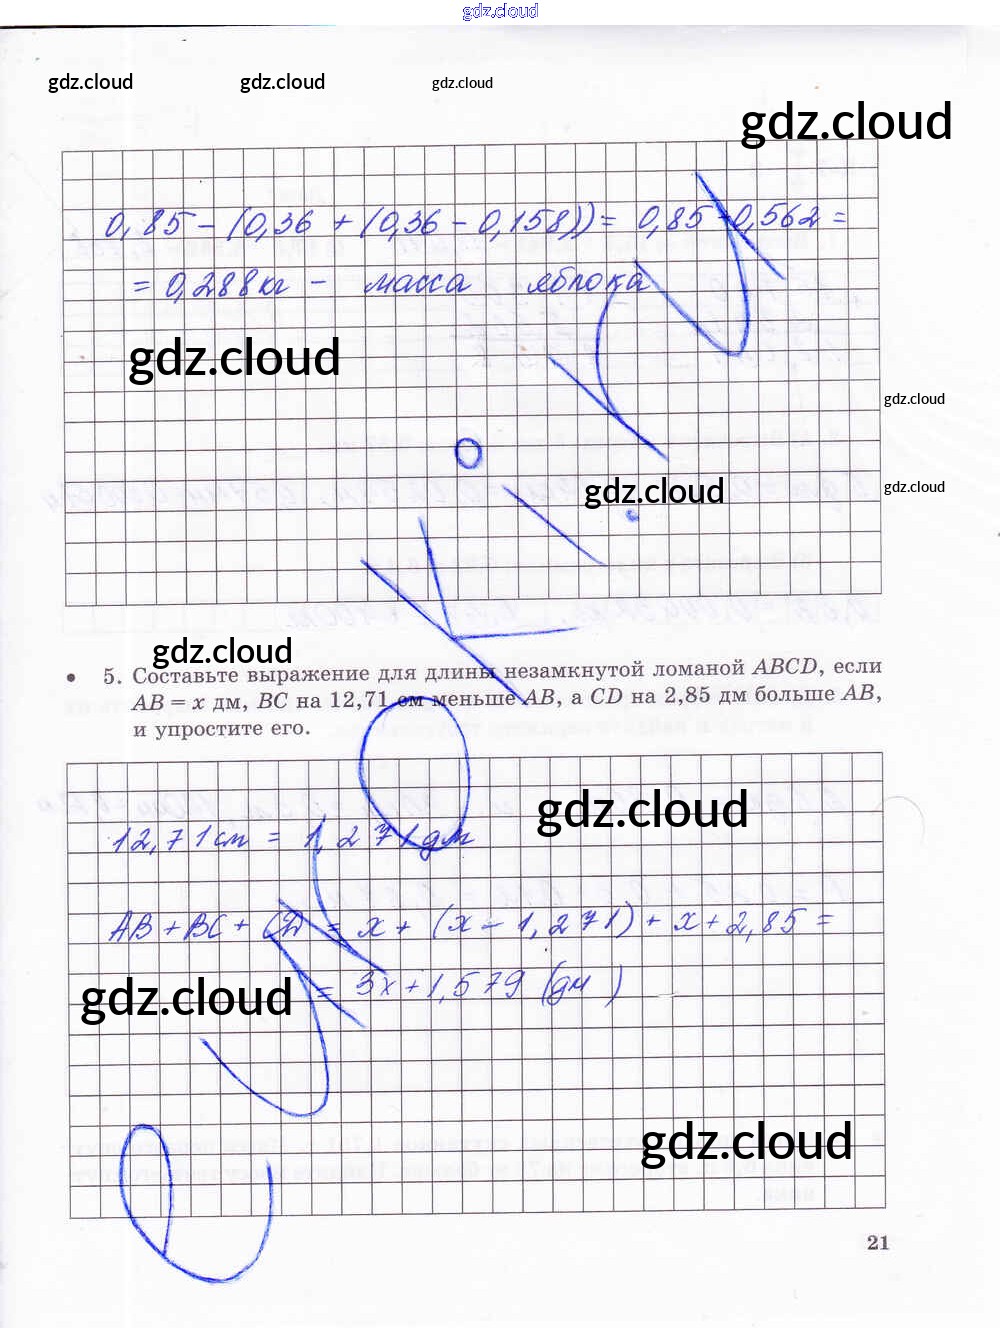 gdz.cloud
gdz.cloud gdz.cloud gdz.cloud
gdz.cloud
0,85 - (0,36 + (0,36 - 0,158)) = 0,85 - 0,562 =
= 0,288 кг - масса яблока
gdz.cloud
gdz.cloud
gdz.cloud
gdz.cloud
gdz.cloud
• 5. Составьте выражение для длины незамкнутой ломаной ABCD, если
AB = x дм, BC на 12,71 см меньше AB, а CD на 2,85 дм больше AB,
и упростите его.
gdz.cloud
12,71 см = 1,271 дм
AB + BC + CD = x + (x - 1,271) + x + 2,85 =
= 3x + 1,579 (дм)
gdz.cloud
gdz.cloud
21